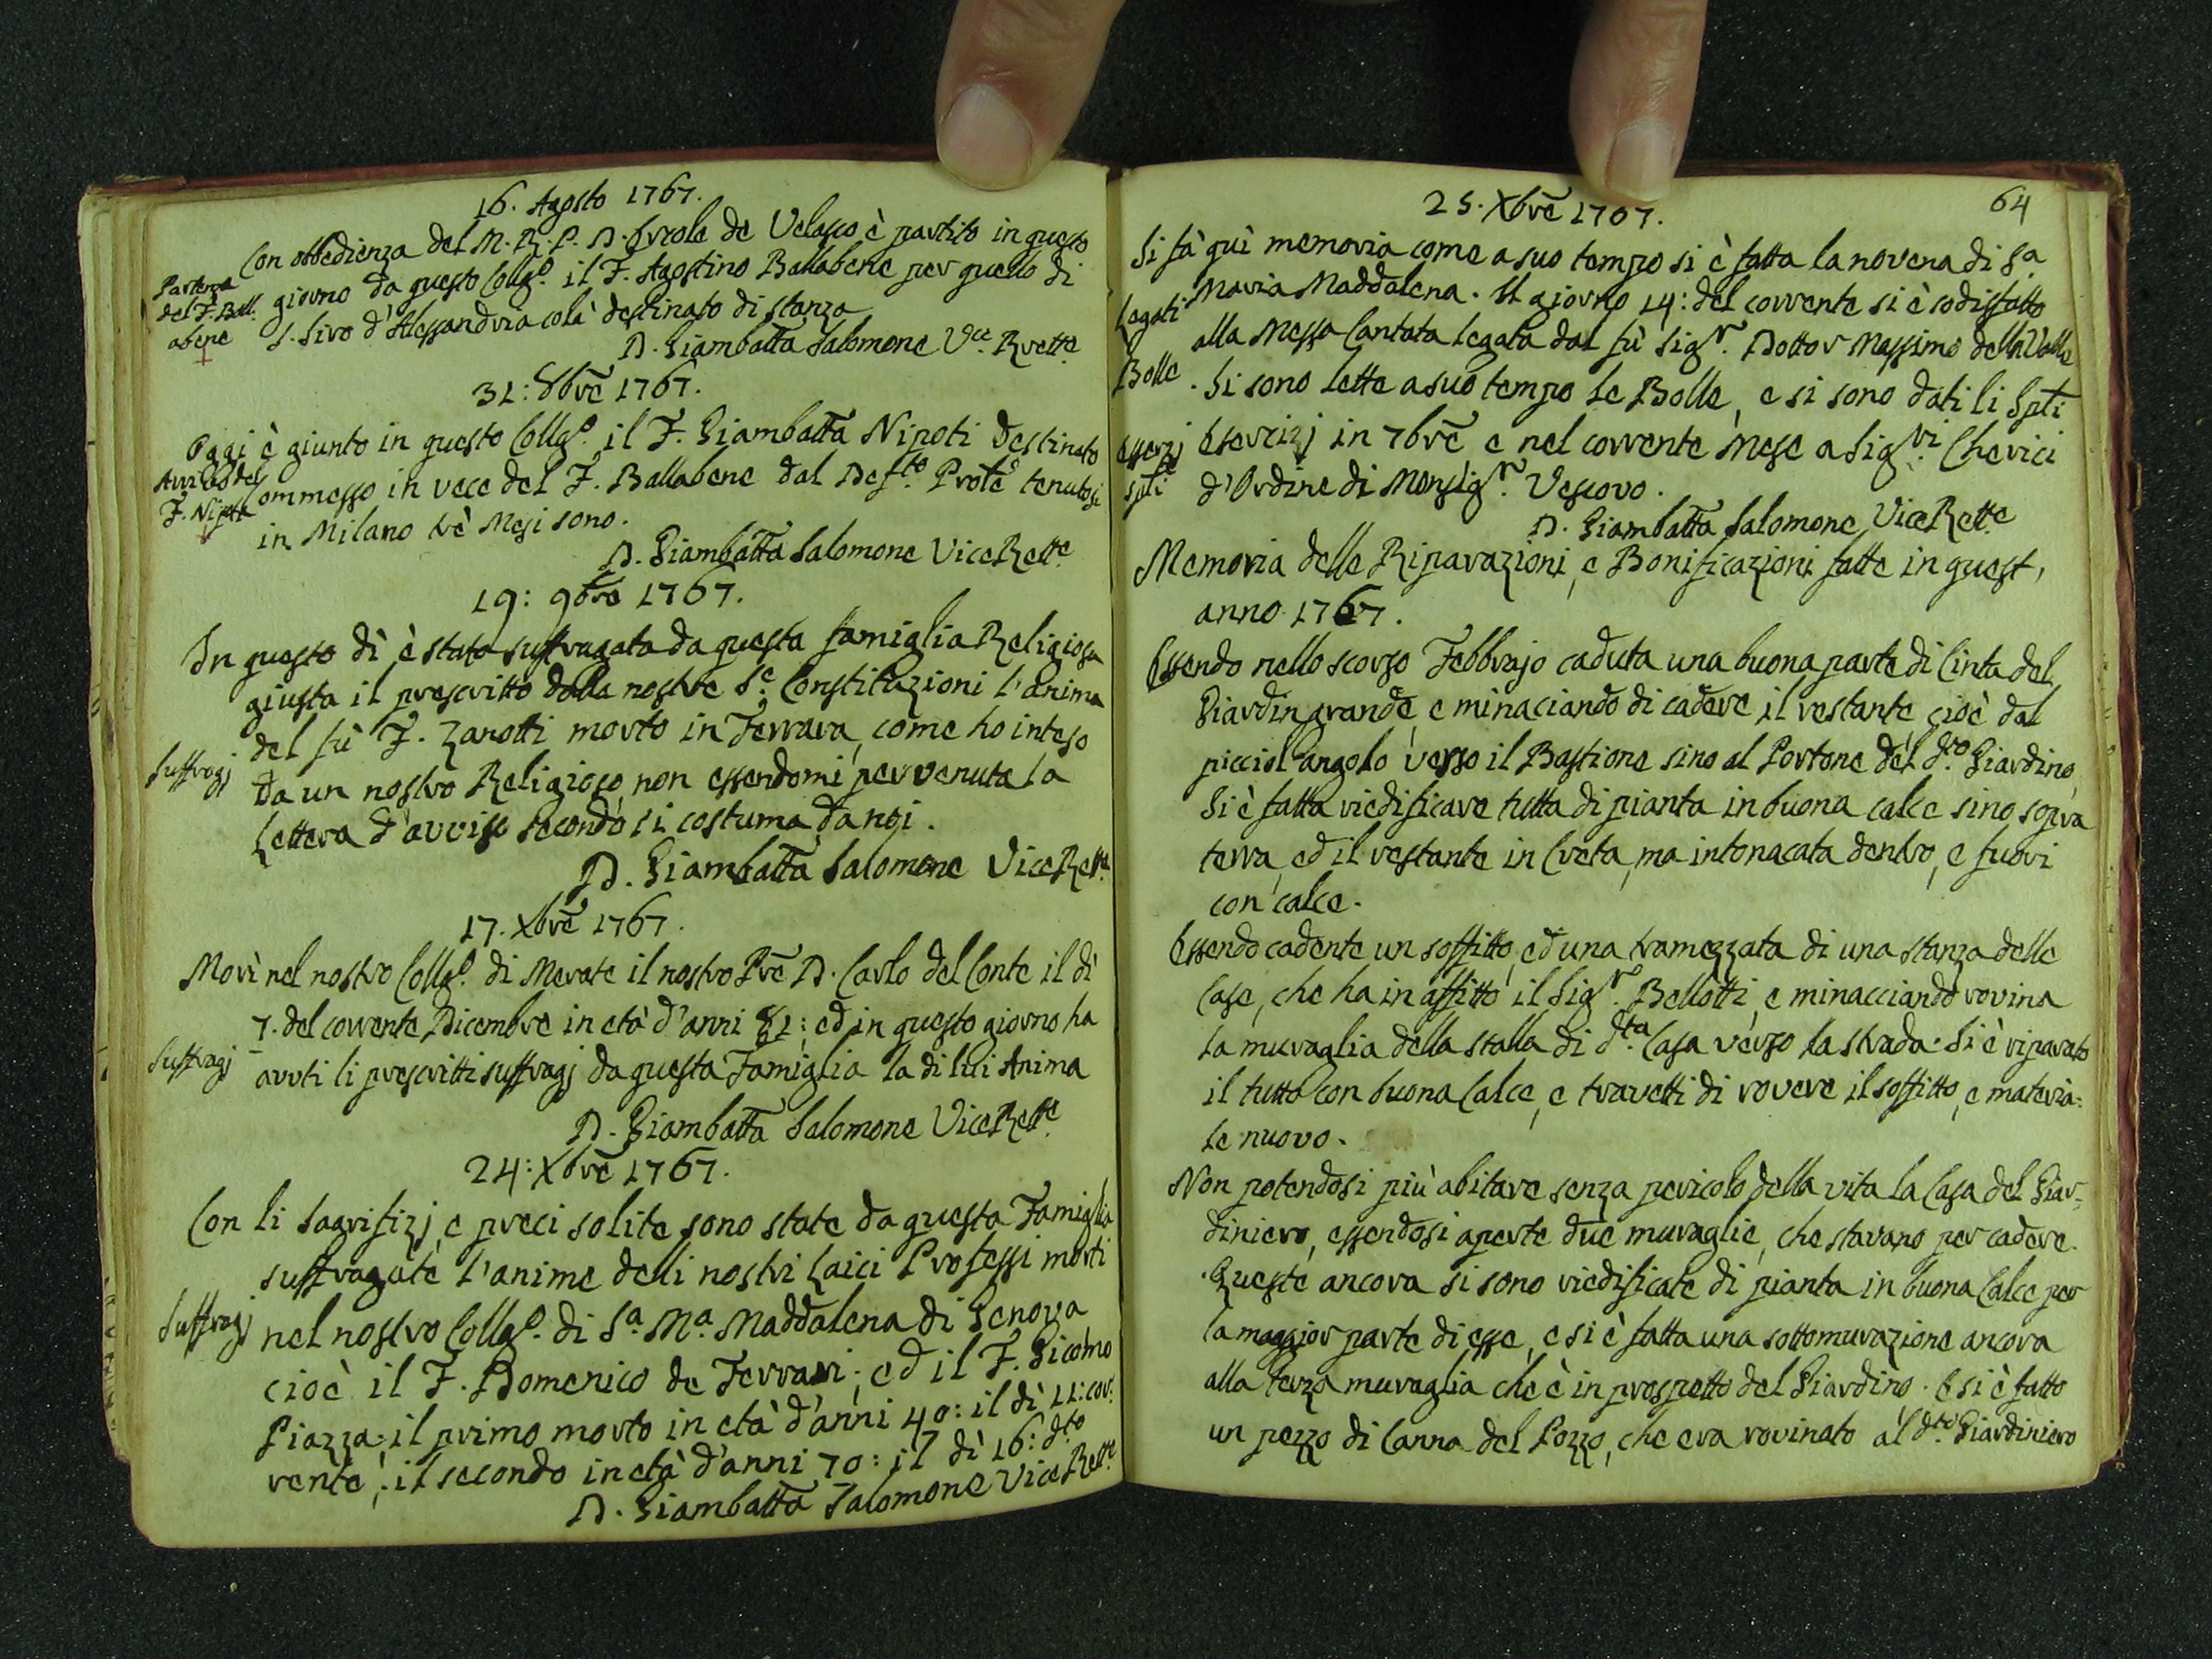 16. Agosto 1767.
Con obbedienza del M. R. P. D. Ercole de Velasco è partito in questo
Partenza
del F. Ball.
abene
giorno da questo Collg.o il F. Agostino Ballabene per quello di
S. Siro d'Alessandria colà destinato di stanza
D. Giambatta Salomone Vce. Rrette
31: 8bre 1767.
Oggi è giunto in questo Collg.o il F. Giambatta Nipoti destinato
Arrivo del
F. Nipoti
Commesso in vece del F. Ballabene dal Def.to Prole tenutosi
in Milano trè Mesi sono.
D. Giambatta Salomone ViceRette
19: 9bre 1767.
In questo dì è stata suffragata da questa famiglia Religiosa
giusta il prescritto dalla nostre S.e Constituzioni l'anima
del fù F. Zanotti morto in Ferrara, come ho inteso
Suffragj
da un nostro Religioso non essendomi pervenuta la
Lettera d'avviso secondo si costuma da noi.
D. Giambatta Salomone ViceRette
17. Xbre 1767.
Morì nel nostro Collg.o di Merate il nostro Pre D. Carlo del Conte il dì
7. del corrente Dicembre in età d'anni 81: ed in questo giorno ha
Suffragj
avuti li prescritti suffragj da questa Famiglia la di lui Anima
D. Giambatta Salomone ViceRette
24: Xbre 1767.
Con li Sagrifizj, e preci solite sono state da questa Famiglia
suffragate l'anime delli nostri Laici Professi morti
Suffragj
nel nostro Collg.o di S.a M.a Maddalena di Genova
cioè il F. Domenico de Ferrari; ed il F. Giacomo
Piazza: il primo morto in età d'anni 40: il dì 11: cor:
rente; il secondo in età d'anni 70: il dì 16: d.to
D. Giambatta Salomone ViceRette
64
25. Xbre 1767.
Si fà quì memoria come a suo tempo si è fatta la novena di S.a
Maria Maddalena. Il giorno 14: del corrente si è sodisfatto
Legati
alla Messa Cantata legata dal fù Sig.r Dottor Massimo della Valle
Bolle
. Si sono lette a suo tempo le Bolle, e si sono dati li Spti
Esserzj
spti
Esercizj in 7bre e nel corrente Mese a Sig.ri Cherici
d'Ordine di Monsig.r Vescovo.
D. Giambatta Salomone ViceRette
Memoria delle Riparazioni, e Bonificazioni fatte in quest'
anno 1767.
Essendo nello scorso Febbrajo caduta una buona parte di Cinta del
Giardin grande, e minaciando di cadere il restante cioè dal
picciol angolo verso il Bastione sino al Portone del d.to Giardino
Si è fatta riedificare tutta di pianta in buona calce sino sopra
terra, ed il restante in Creta, ma intonacata dentro, e fuori
con calce.
Essendo cadente un soffitto, ed una tramezzata di una stanza delle
Case, che ha in affitto il Sig.r Bellotti, e minacciando rovina
la muraglia della stalla di d.ta Casa verso la strada. Si è riparato
il tutto con buona Calce, e travetti di rovere il soffitto, e materia:
le nuovo.
Non potendosi più abitare senza pericolo della vita la Casa del Giar=
diniero, essendosi aperte due muraglie, che stavano per cadere.
Queste ancora si sono riedificate di pianta in buona Calce per
la maggior parte di esse, e si è fatta una sottomurazione ancora
alla terza muraglia che è in prospetto del Giardino. E si è fatto
un pezzo di Canna del Pozzo, che era rovinato al d.to Giardiniero